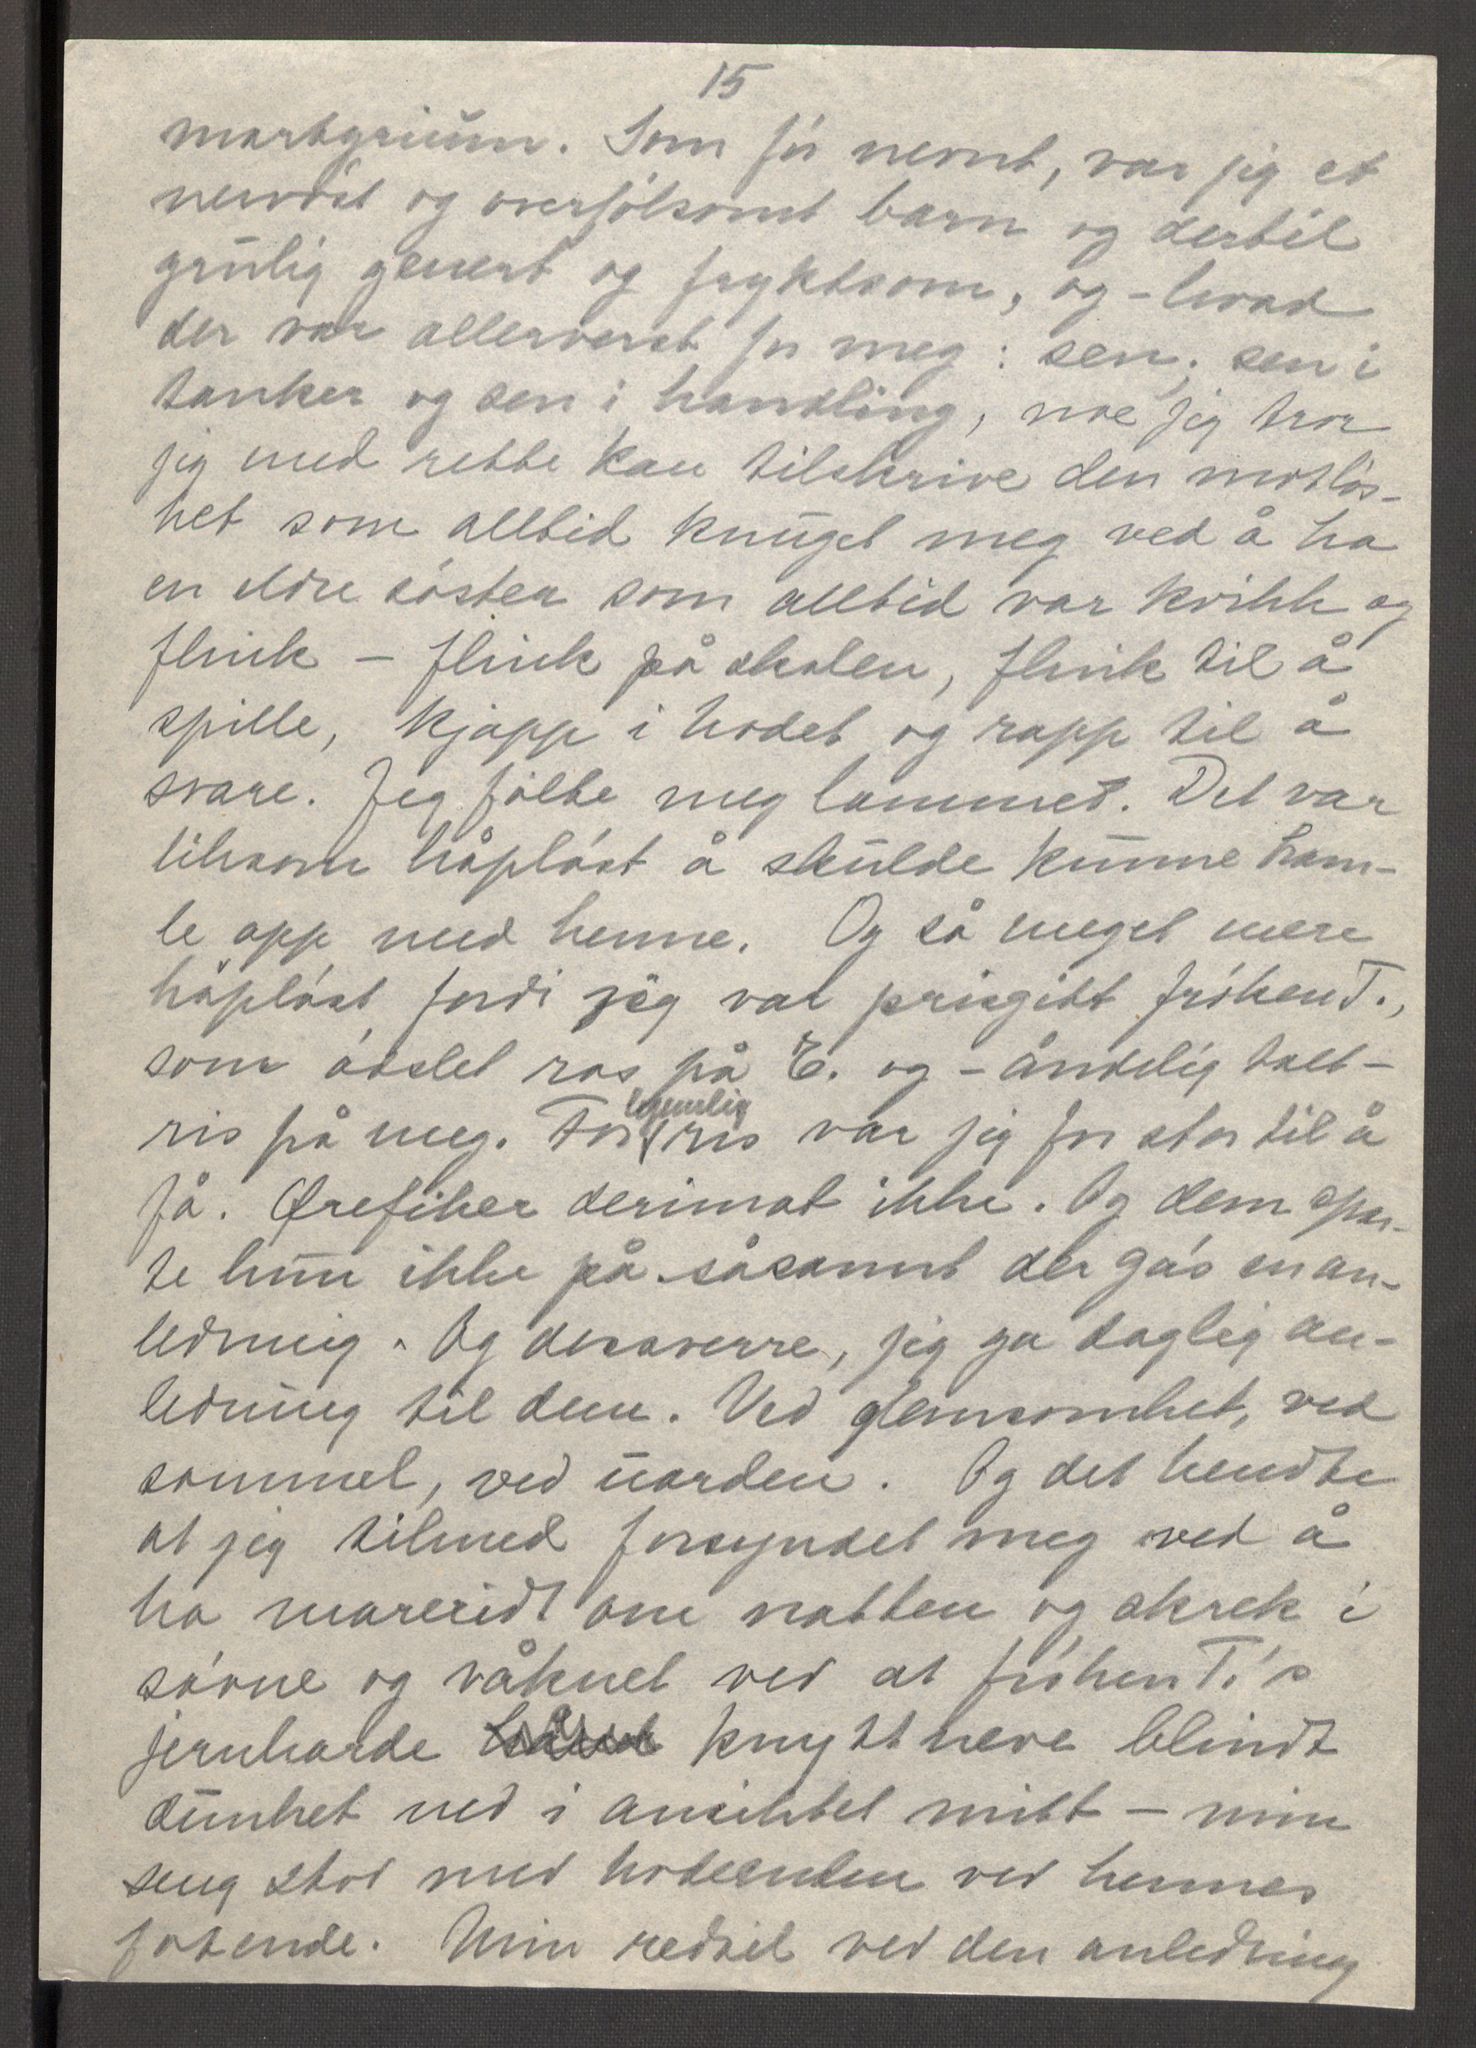 15
martyrium. Som fór nevnt, var jeg et
nervóst og overfólsomt barn og dertil
grulig genert og fryktsom, og - hvad
der var allerverst for meg: sen; sen i
tanker og sen i handling, noe jeg tror
jeg med rette kan tilskrive den motlós-
het som alltid knuget meg ved å ha
en eldre sóster som alltid var kvikk og
flink - flink på skolen, flink til å
spille, kjapp i hodet og rapp til å
svare. Jeg fólte meg lammet. Det var
liksom håplóst å skulde kunne ham-
le opp med henne. Og så meget mere
håplóst fordi jeg var prisgitt fróken T.,
som ódslet ros på E. og - åndelig talt -
ris på meg. For legemlig ris var jeg for stor til å
få. Ørefiker derimot ikke. Og dem spar-
te hun ikke på såsannt der gas en an-
ledning. Og dessverre, jeg ga daglig an-
ledning til dem. Ved glemsomhet, ved
sommel, ved uorden. Og det hendte
at jeg tilmed forsyndet meg ved å
ha mareridt om natten og skrek i
sóvne og våknet ved at fróken T.'s
jernharde knyttneve blindt
dunket ned i ansiktet mitt - min
seng stod med hodeenden ved hennes
fotende. Min redsel ved den anledning